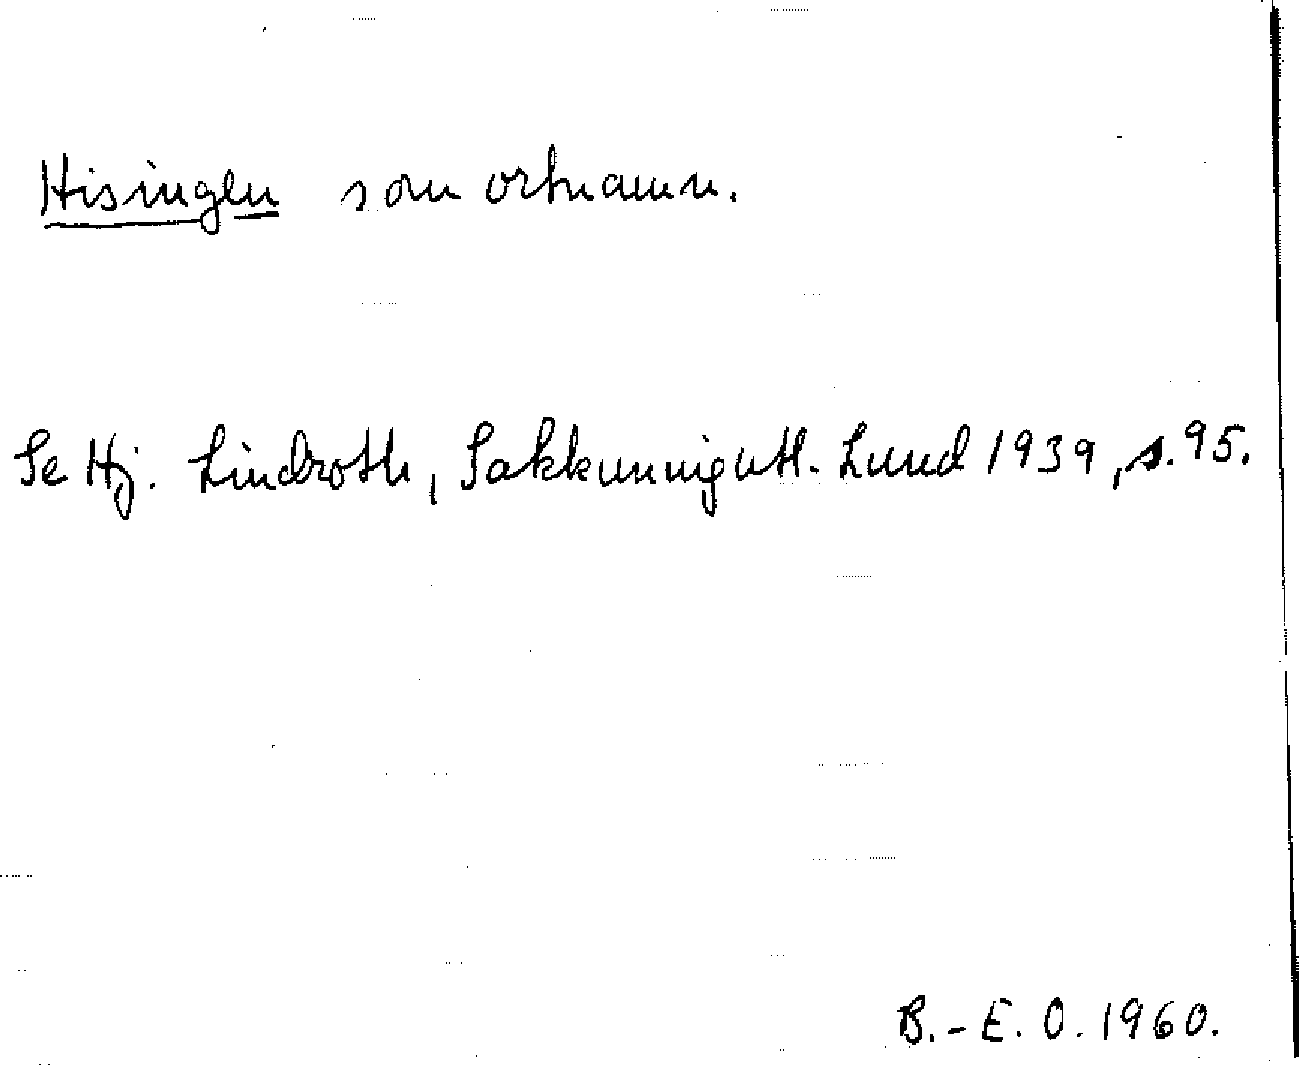 Hisingen som ortnamn.
Se Hj. Lindroth, Sakkunnigutl. Lund 1939, s. 95.
B.-E. O. 1960.